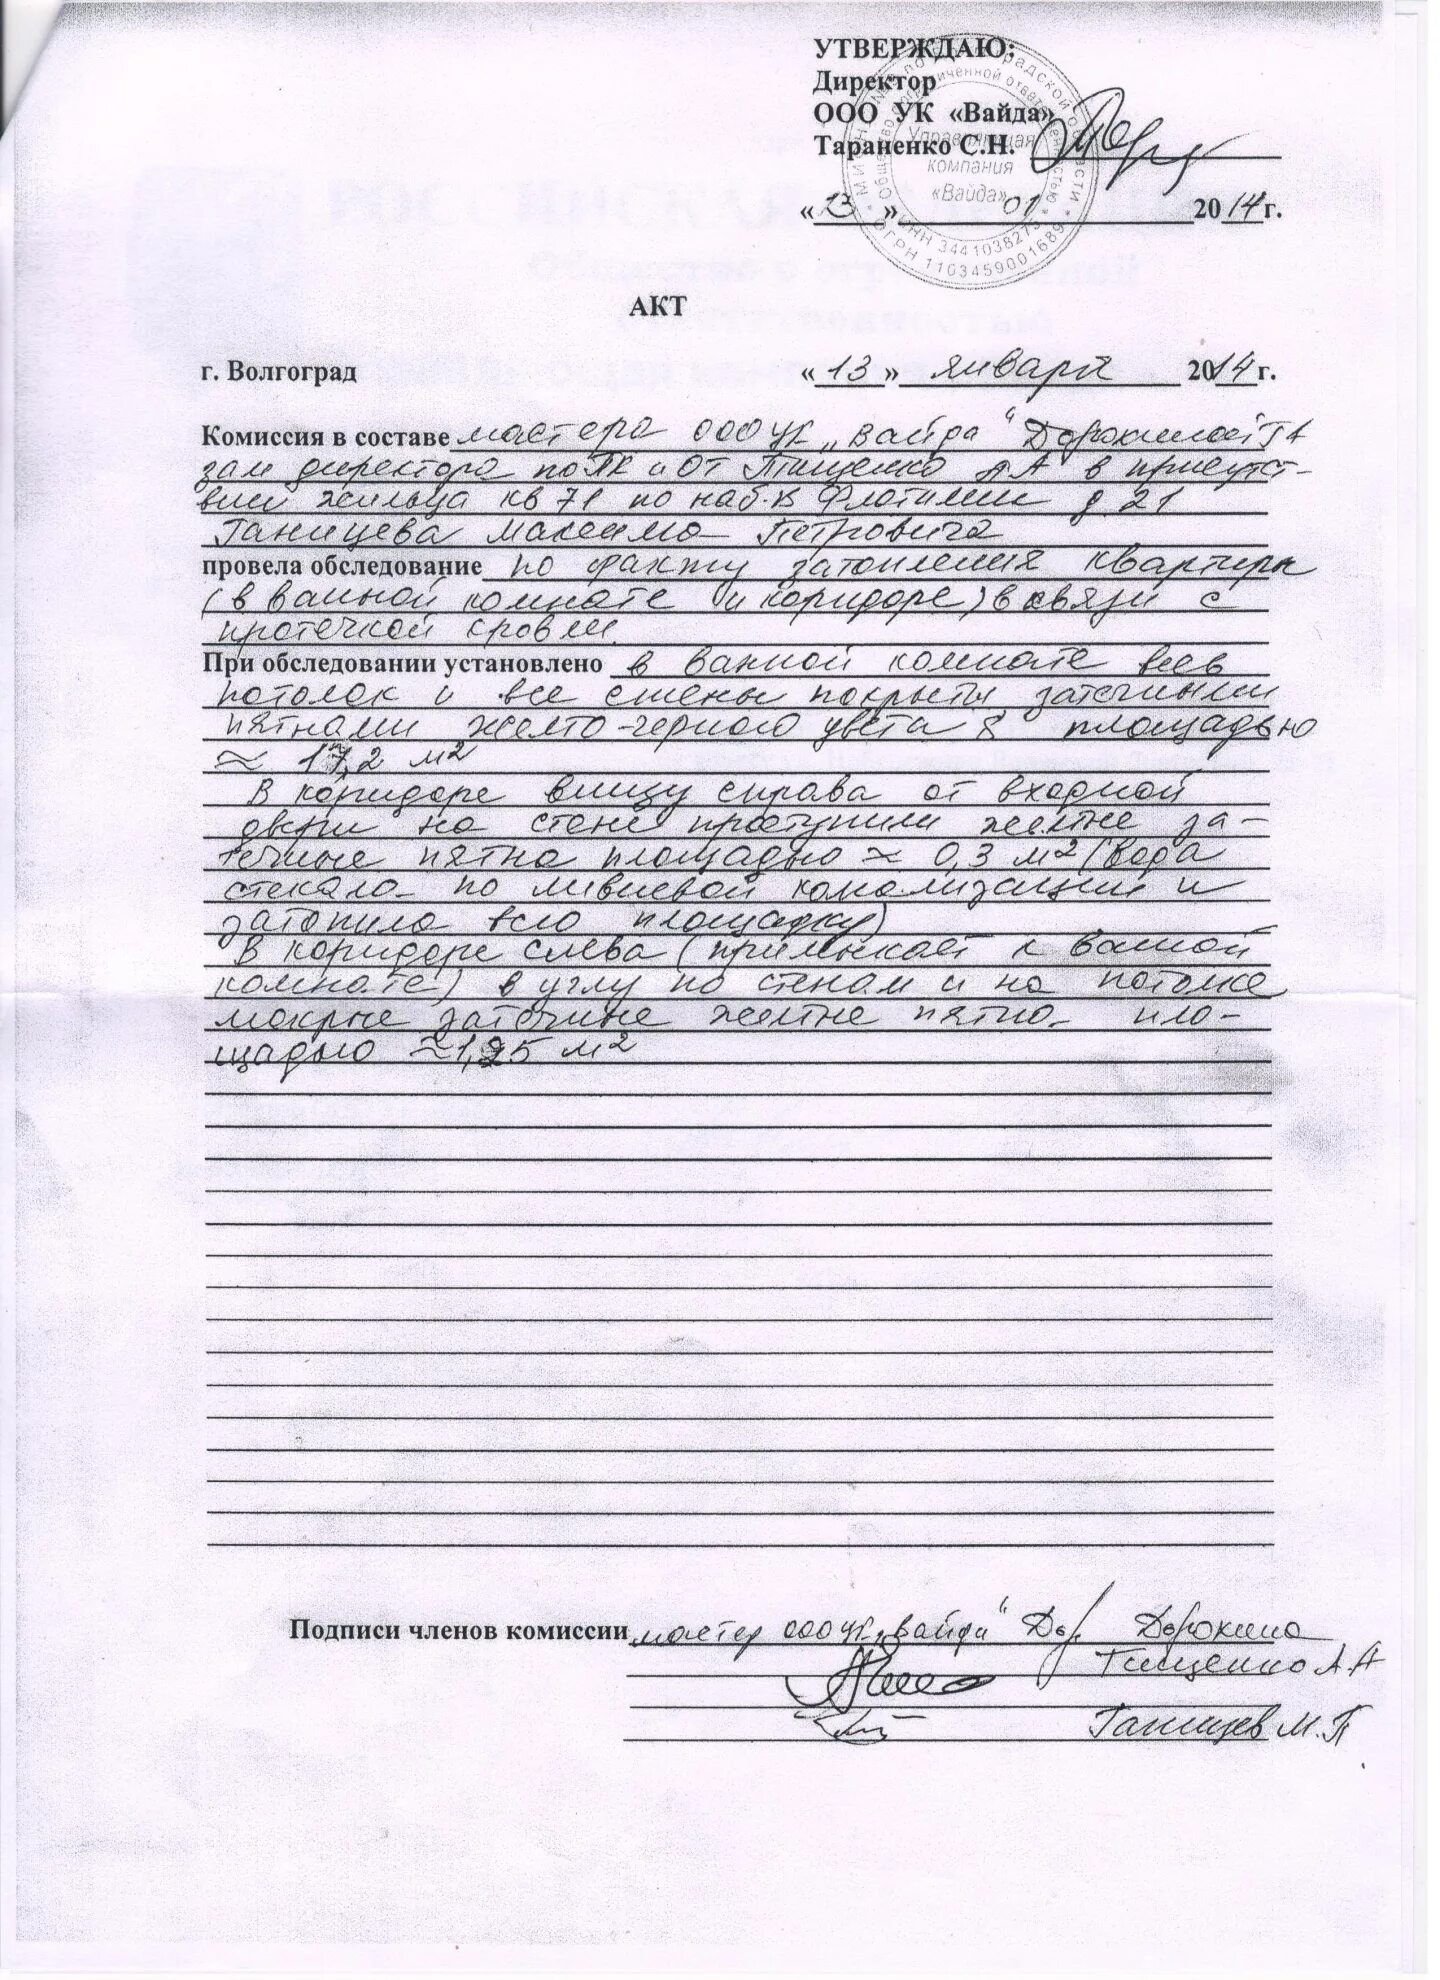 УТВЕРЖДАЮ:
Директор
ООО УК «Вайда»
Тараненко С.Н.
Управляющая
компания
«Вайда»
ИНН 3441038275
ОГРН 1103459001689
« 13 » 01 2014г.
АКТ
г. Волгоград « 13 » января 2014г.
Комиссия в составе мастера ООО УК „Вайда“ Дорохиной
зам директора по ПК и ОТ Тищенко А А в присутст-
вии жильца кв 71 по наб. В Флотилии д 21
Ганицева Максима Петровича
провела обследование по факту затопления квартиры
(в ванной комнате и коридоре) в связи с
протечкой кровли.
При обследовании установлено в ванной комнате весь
потолок и все стены покрыты заточными
пятнами желто-черного цвета площадью
≈ 17,2 м²
В коридоре внизу справа от входной
двери на стене проступили желтые за-
течные пятна площадью ≈ 0,3 м² (вода
стекала по ливневой канализации и
затопила всю площадку)
В коридоре слева (примыкает к ванной
комнате) в углу по стенам и на потолке
мокрые заточные желтые пятна пло-
щадью ≈ 1,25 м²
Подписи членов комиссии мастер ООО УК „Вайда“ Дорохина
Тищенко А.А
Ганицев М.П